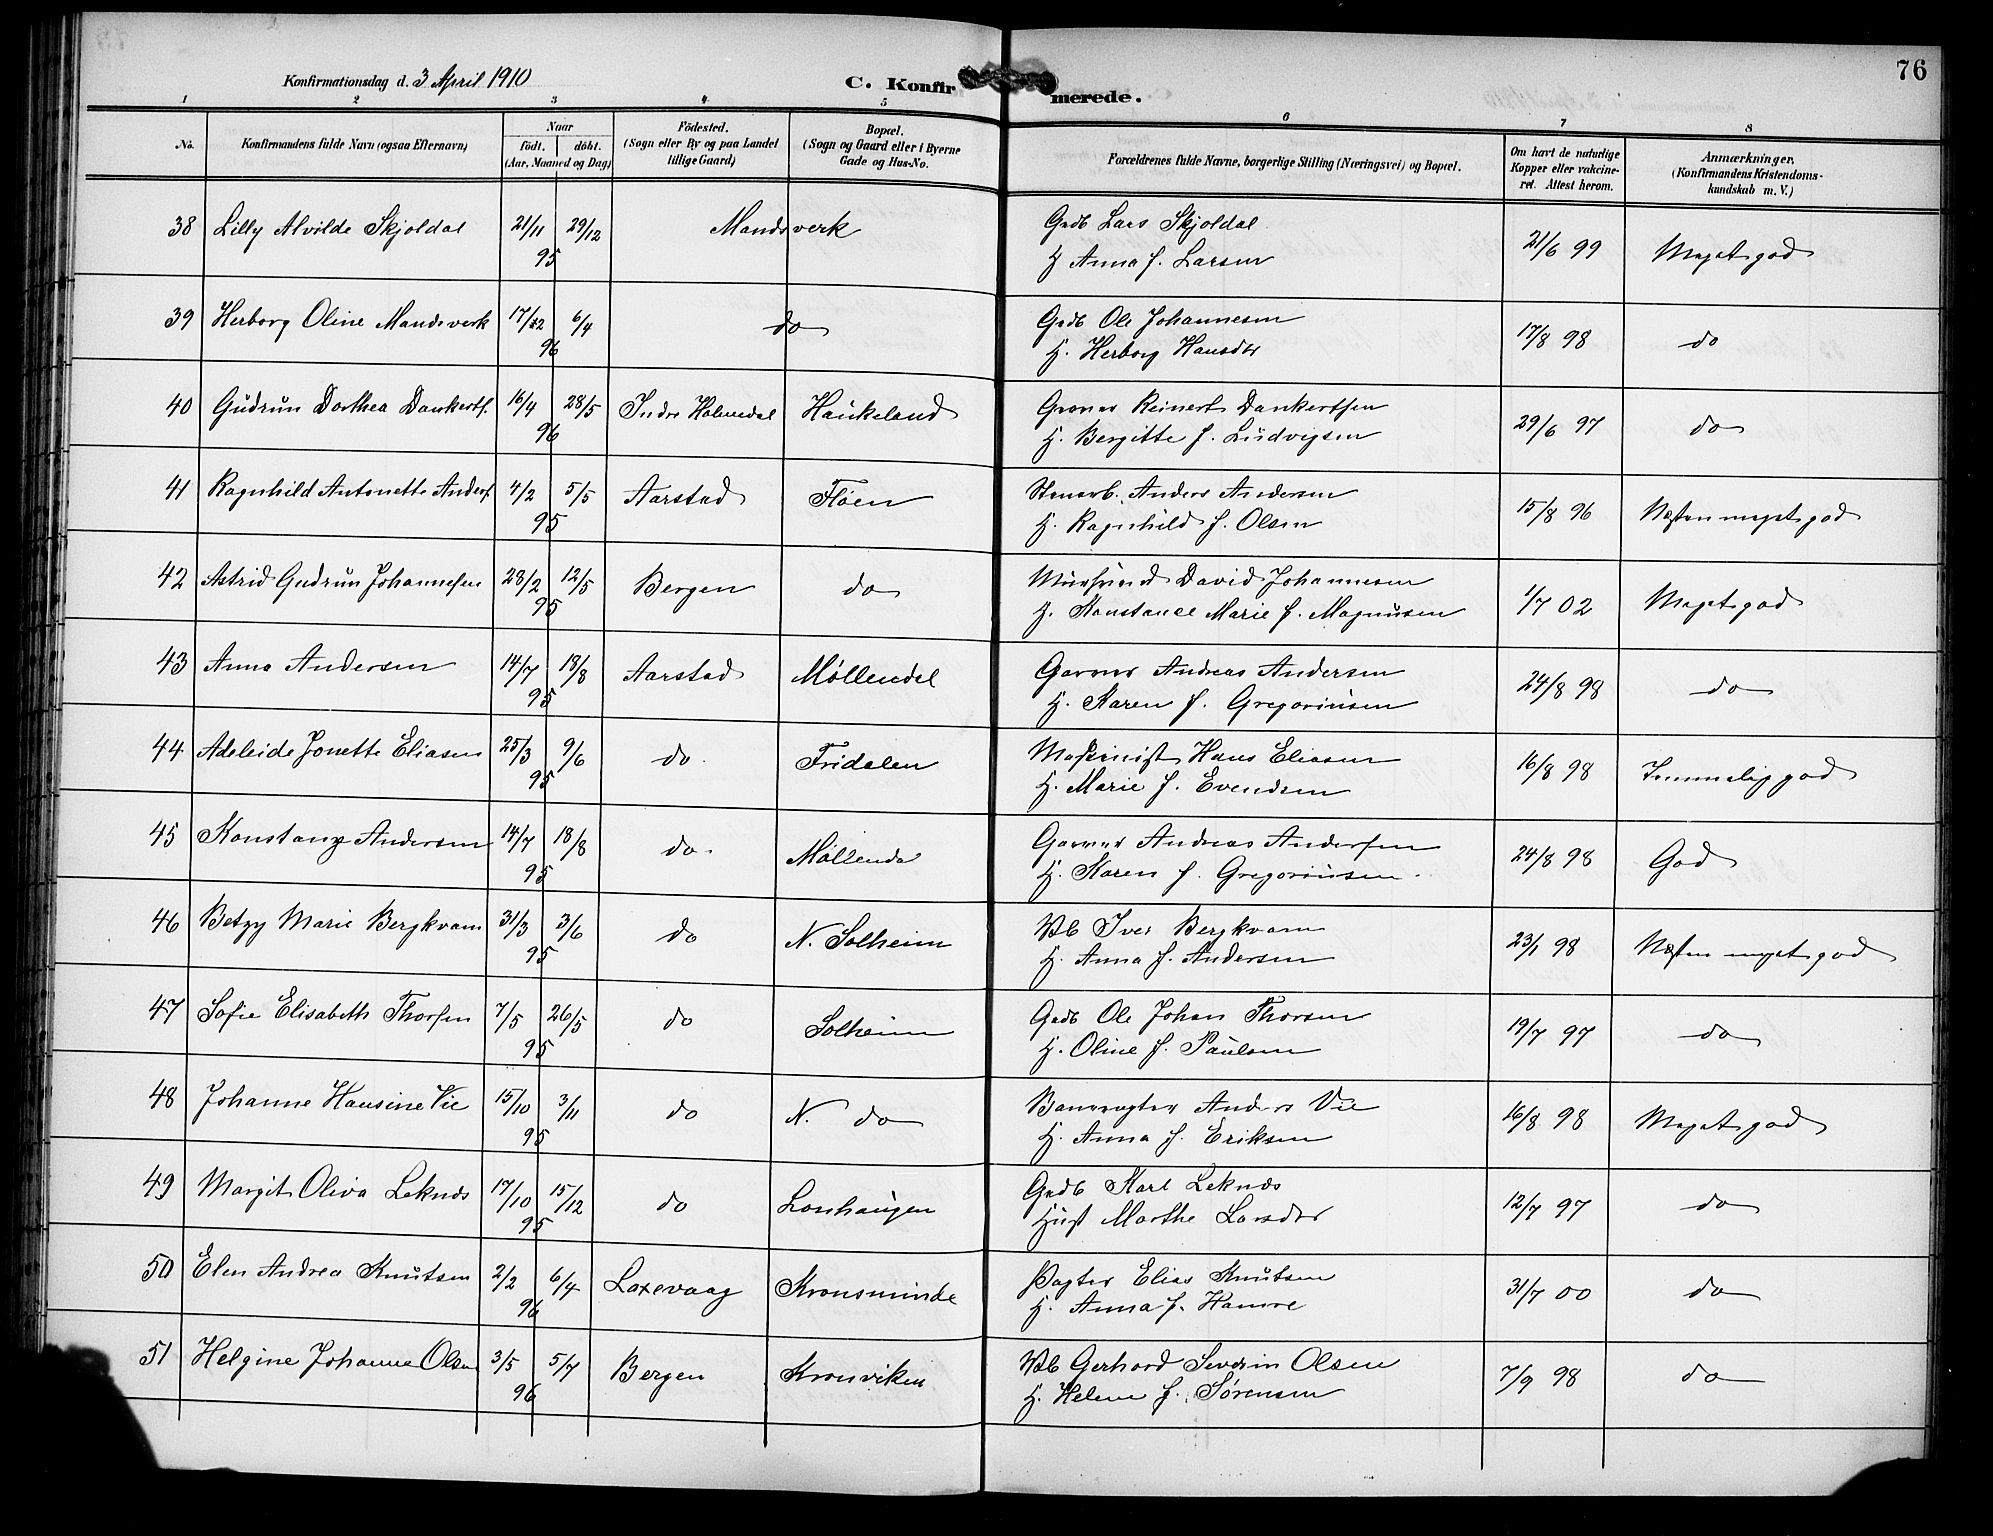 76
Konfirmationsdag d. 3 April 1910
C. Konfirmerede.
1 2 3 4 5 6 7 8
No.
Konfirmandens fulde Navn (ogsaa Efternavn)
Naar
født. døbt.
(Aar, Maaned og Dag)
Fødested.
(Sogn eller By og paa Landet
tillige Gaard)
Bopæl.
(Sogn og Gaard eller i Byerne
Gade og Hus-No.
Forældrenes fulde Navne, borgerlige Stilling (Næringsvei) og Bopæl.
Om havt de naturlige
Kopper eller vakcine-
ret. Attest herom.
Anmærkninger.
(Konfirmandens Kristendoms-
kundskab m. V.)
38 Lilly Alvilde Skjoldal 21/11 29/12 95 Mandsverk
Grdb Lars Skjoldal
H Anna f. Larsen
21/6 99 Meget god
39 Herborg Oline Mandsverk 17/2 6/4 96 do
Grdb Ole Johannesen
H. Herborg Hansdtr
17/8 98 do
40 Gudrun Dorthea Dankerts. 16/4 28/5 96 Indre Holmedal Haukeland
Garver Reinert Dankertsen
H. Bergitte f. Ludvigsen
29/6 97 do
41 Ragnhild Antonette Anders. 4/2 5/5 95 Aarstad Fløen
Stenarb. Anders Andersen
H. Ragnhild f. Olsen
15/8 96 Næsten meget god
42 Astrid Gudrun Johannesen 28/2 12/5 95 Bergen do
Mursvend David Johannesen
H. Konstance Marie f. Magnusen
1/7 02 Meget god
43 Anna Andersen 14/7 18/8 95 Aarstad Møllendal
Garver Andreas Andersen
H. Karen f. Gregoriusen
24/8 98 do
44 Adeleide Jonette Eliasen 25/3 9/6 95 do. Fridalen
Maskinist Hans Eliasen
H. Marie f. Evendsen
16/8 98 Temmelig god
45 Konstanze Andersen 14/7 18/8 95 do. Møllendal
Garver Andreas Andersen
H. Karen f. Gregoriusen.
24/8 98 God
46 Betzy Marie Bergkvam 31/3 3/6 95 do N. Solheim
Vb Iver Bergkvam
H. Anna f. Andersen
23/1 98 Næsten meget god
47 Sofie Elisabeth Thorsen 7/5 26/5 95 do Solheim
Grdb Ole Johan Thorsen
H. Oline f. Paulsen
19/7 97 do
48 Johanne Hansine Vie 15/10 3/11 95 do N. do
Banevogter Anders Vie
H. Anna f. Eriksen
16/8 98 Meget god
49 Margit Oliva Leknes 17/10 15/12 95 do Lonhaugen
Grdb Karl Leknes
Hust Marthe Larsdtr
12/7 97 do
50 Elen Andrea Knutsen 2/2 6/4 96 Laxevaag Kronsminde
Vagter Elias Knutsen
H. Anna f. Hamre
31/7 00 do
51 Helgine Johanne Olsen 3/5 5/7 96 Bergen Kronviken
Vb Gerhard Severin Olsen
H. Helene f. Sørensen
7/9 98 do